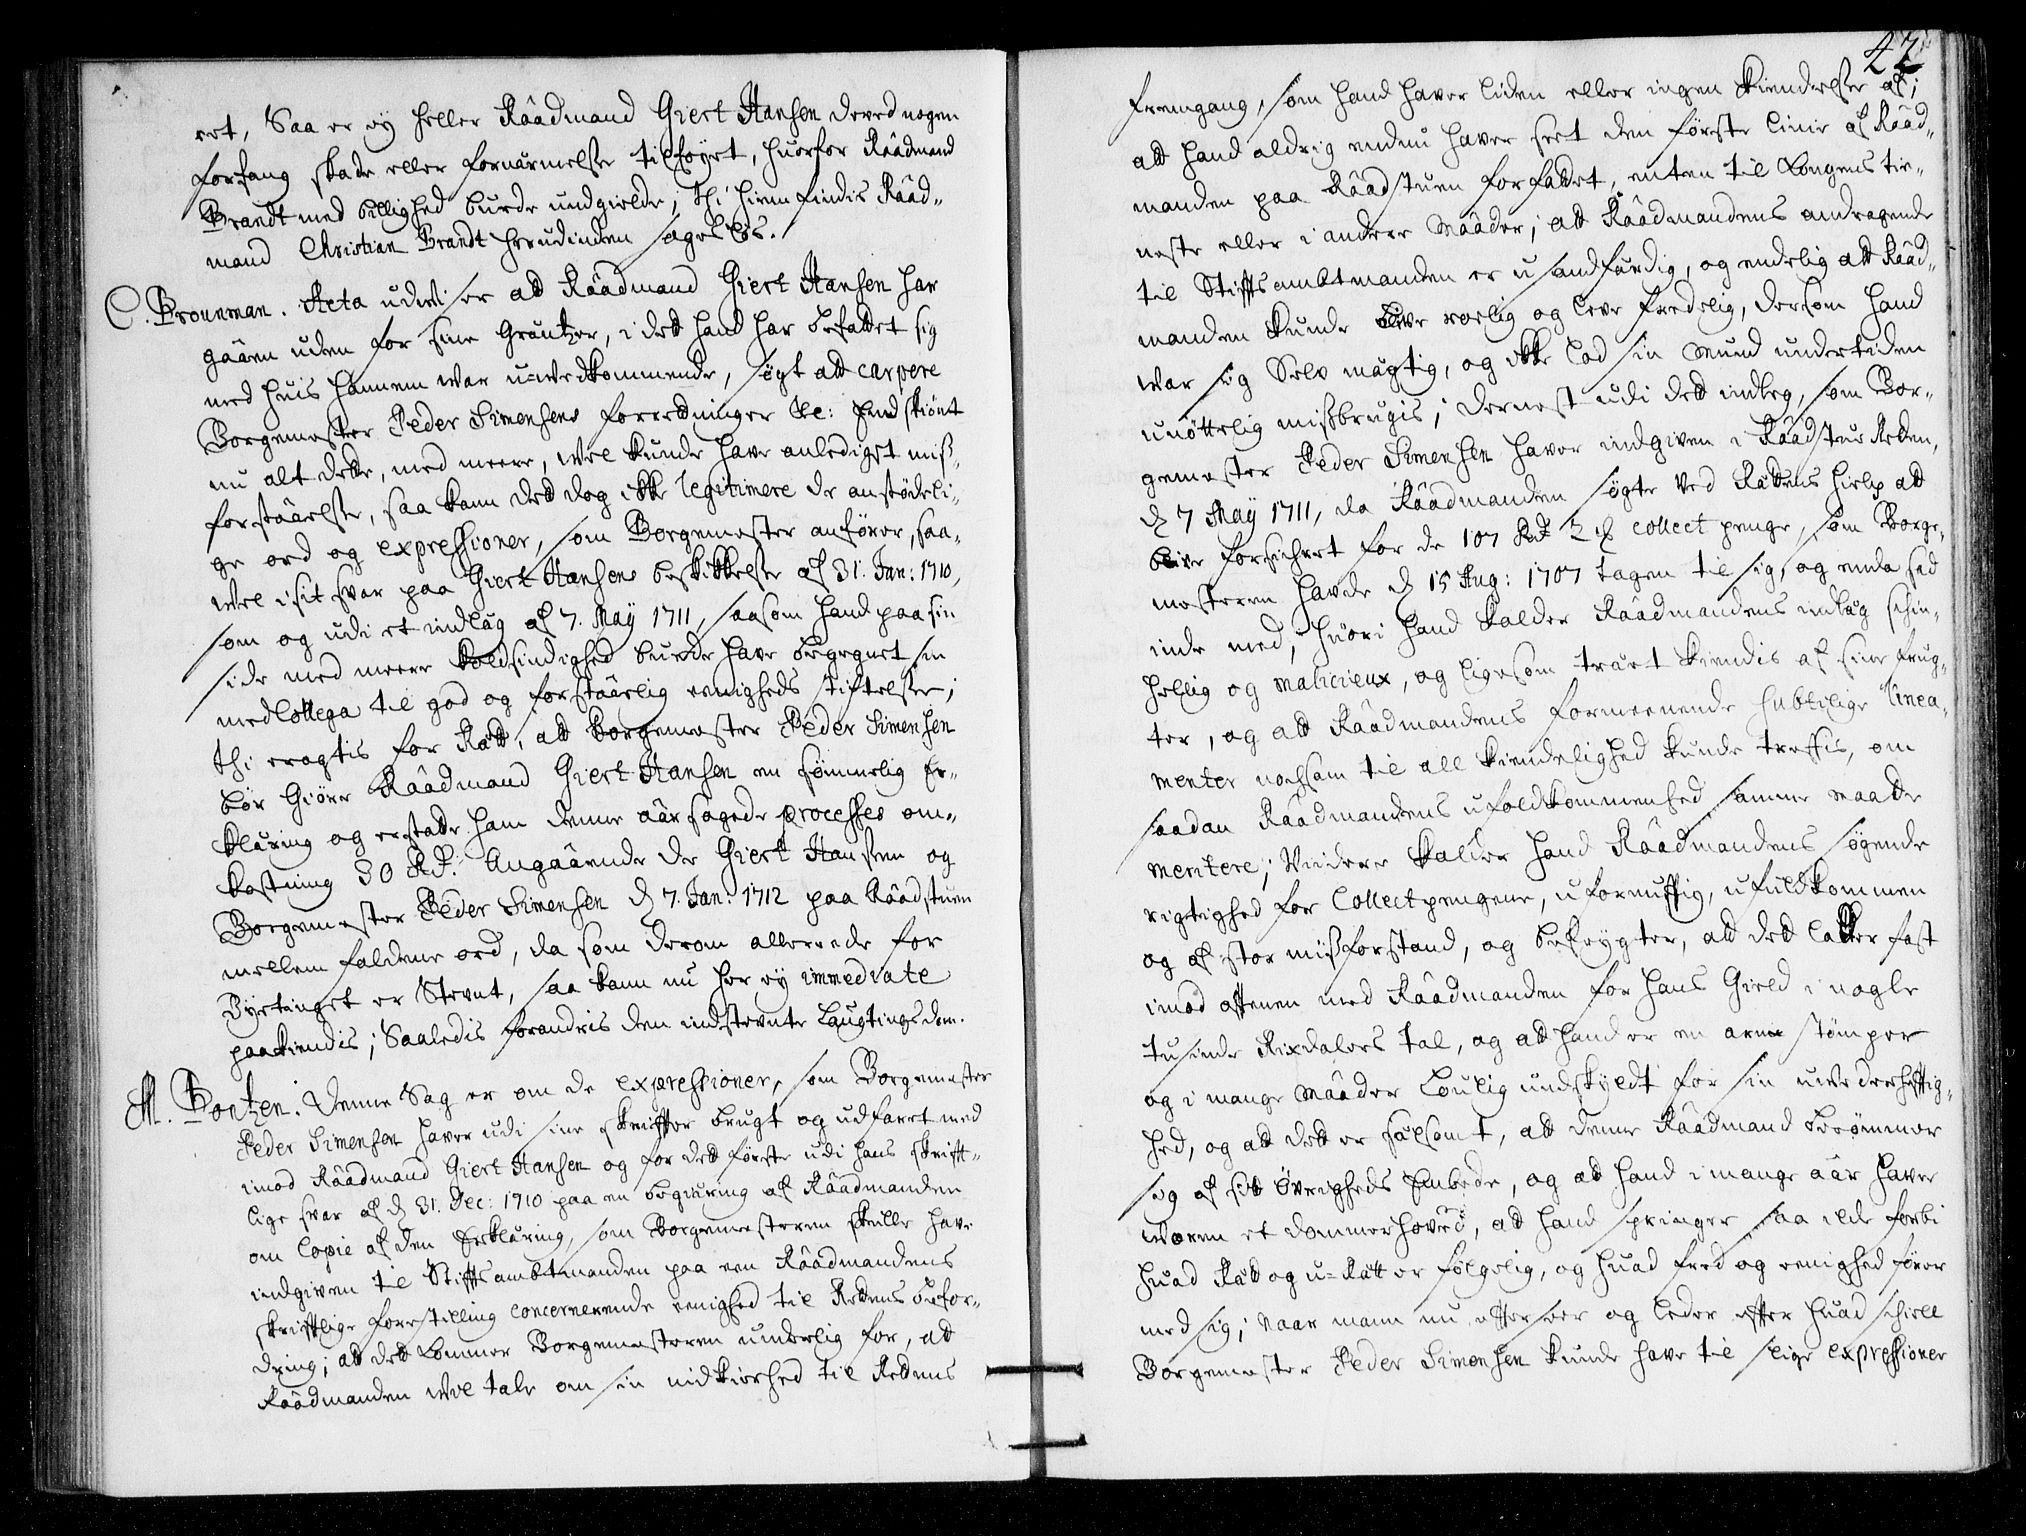 ret, Saa er ey heller Räädmand Giert Hansen derved nogen
forfang skade eller fornärmelse tilföyet, huorfor Räädmand
Brandt med billighed burde undgielde, thi hiemfindis Rääd-
mand Christian Brandt herudinden sagesløs.
C. Brounman. Acta udviser at Räädmand Giert Hansen har
gäaen uden for sine Gräntzer, i det hand har befattet sig
med huis hannem war u-wedkommende, søgt att carpere
Borgemester Peder Simensens forretninger etc: End skiönt
nu alt dette, med meere, wel kunde have anlediget miss-
forstäaelse, saa kand det dog ikke legitimere de anstødeli-
ge ord og expressioner, som Borgemester anfører, saa-
wel i sit svar paa Giert Hansens beskikkelse af 31. Jan: 1710,
som og udi et indläg af 7. May 1711, saasom hand paa sin
side med meere koldsindighed burde have begegnet sin
med Collega til god og forstäaelig eenigheds stiftelse;
thi eragtis for Rätt, att Borgemester Peder Simensen
bør Giöre Räädmand Giert Hansen en sömmelig Er-
kläring og erstatte ham denne aarsagede processes om-
kostning 30 Rd. Angäaende de Giert Hansen og
Borgemester Peder Simensen d 7. Jan: 1712 paa Räädstuen
mellem faldene ord, da som derom allereede for
Byetinget er Stevnt, saa kand nu her ey immediate
paakiendis; Saaledis forandris den indstevnte Laugtingsdom.
M. Bortzen. Denne Sag er om de expressioner, som Borgemester
Peder Simensen haver udi sine skrifter brugt og udfaret med
imod Räädmand Giert Hansen og for det første udi hans skrift-
lige svar af d 31. Dec: 1710 paa en begiæring af Räädmanden
om Copie af den Erkläring, som Borgemesteren skulle have
indgiven til Stiftsambtmanden paa een Räädmandens
skriftlige forestilling concernerende eenighed til Rettens befor-
dring; att det kommer Borgemesteren underlig for, att
Räädmanden wil tale om sin nidkierhed til Rettens
42
fremgang, som hand haver liden eller ingen kiendelse af;
att hand aldrig endnu haver seet den første linie af Rääd-
manden paa Räädstuen forfattet, enten til Kongens tie-
neste eller i andere Määder; att Räädmandens andragende
til Stiftsambtmanden er usandfärdig, og endelig att Rääd-
manden kunde blive roelig og leve fredelig, dersom hand
war sig Selv mägtig, og ikke lod sin Mund undertiden
unöttelig missbrugis; Dernest udi det indleg, som Bor-
gemester Peder Simensen haver indgiven i Räädstue Retten,
d 7 May 1711, da Räädmanden søgte ved Rättens hielp att
blive forsichert for de 107 Rd 2 s collect penge, som Borge-
mesteren havde d 15 Aug: 1707 tagen til sig, og enda sad
inde med, huori hand kalder Räädmandens indläg schin-
hellig og malicieux, og ligesom träet kiendis af sine frug-
ter, og att Räädmandens formeenende subtilige linea-
menter nochsom til all kiendelighed kunde treffis, om
saadan Räädmandens ufoldkommenhed samme maatte
meritere; Videre kalder hand Räädmandens søgende
rigtighed for Collectpengene, ufornuftig, ufuldkommen
og af stor missforstand, og befrygter, att det lakker fast
imod aftenen med Räädmanden for hans Gield i nogle
tusinde Rixdalers tal, og att hand er en arm stömper
og i mange määder loulig undskyldt for sin uwederhäftig-
hed, og att det er sälsomt, att denne Räädmand berömmer
sig af sit Øvrigheds Embede, og att hand i mange äar haver
waren et dommerhoved, att hand springer saa ilde forbi
huad Rät og u-Rätt er følgelig, og huad fred og eenighed fører
med sig; Naar mann nu efterseer og leder efter huad schiell
Borgemester Peder Simensen kunde have til slige expressioner